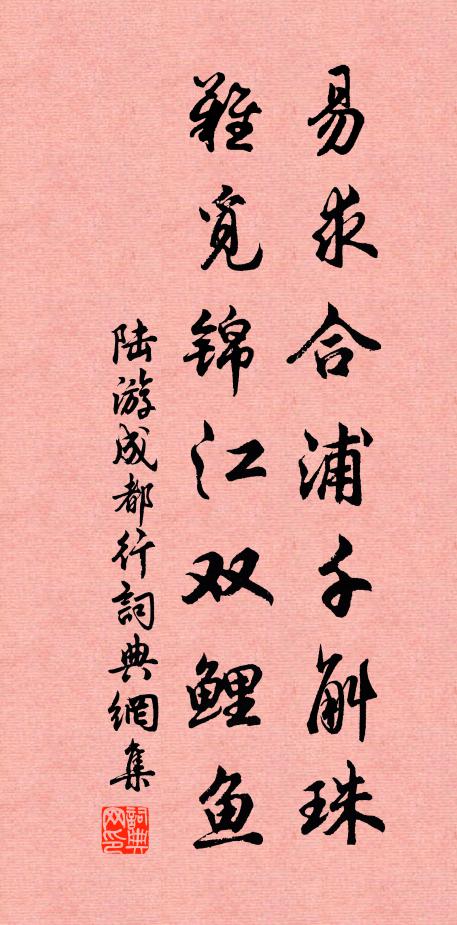 易求合浦千斛珠
难觅锦江双鲤鱼
陆游成都行词典網集
詞典网印